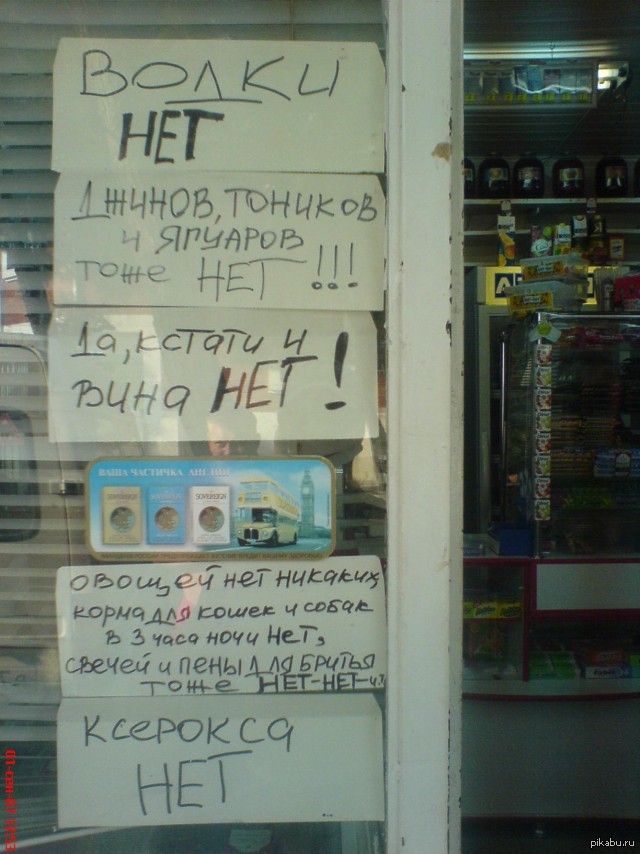 ВОДКИ
НЕТ
ДЖИНОВ, ТОНИКОВ
И ЯГУАРОВ
тоже НЕТ!!!
Да, кстати и
вина НЕТ!
ВАША ЧАСТИЧКА АНГЛИИ
SOVEREIGN SOVEREIGN SOVEREIGN
овощей нет никаких,
корма для кошек и собак
в 3 часа ночи нет,
свечей и пены для бритья
тоже НЕТ-НЕТ-и
ксерокса
НЕТ
pikabu.ru